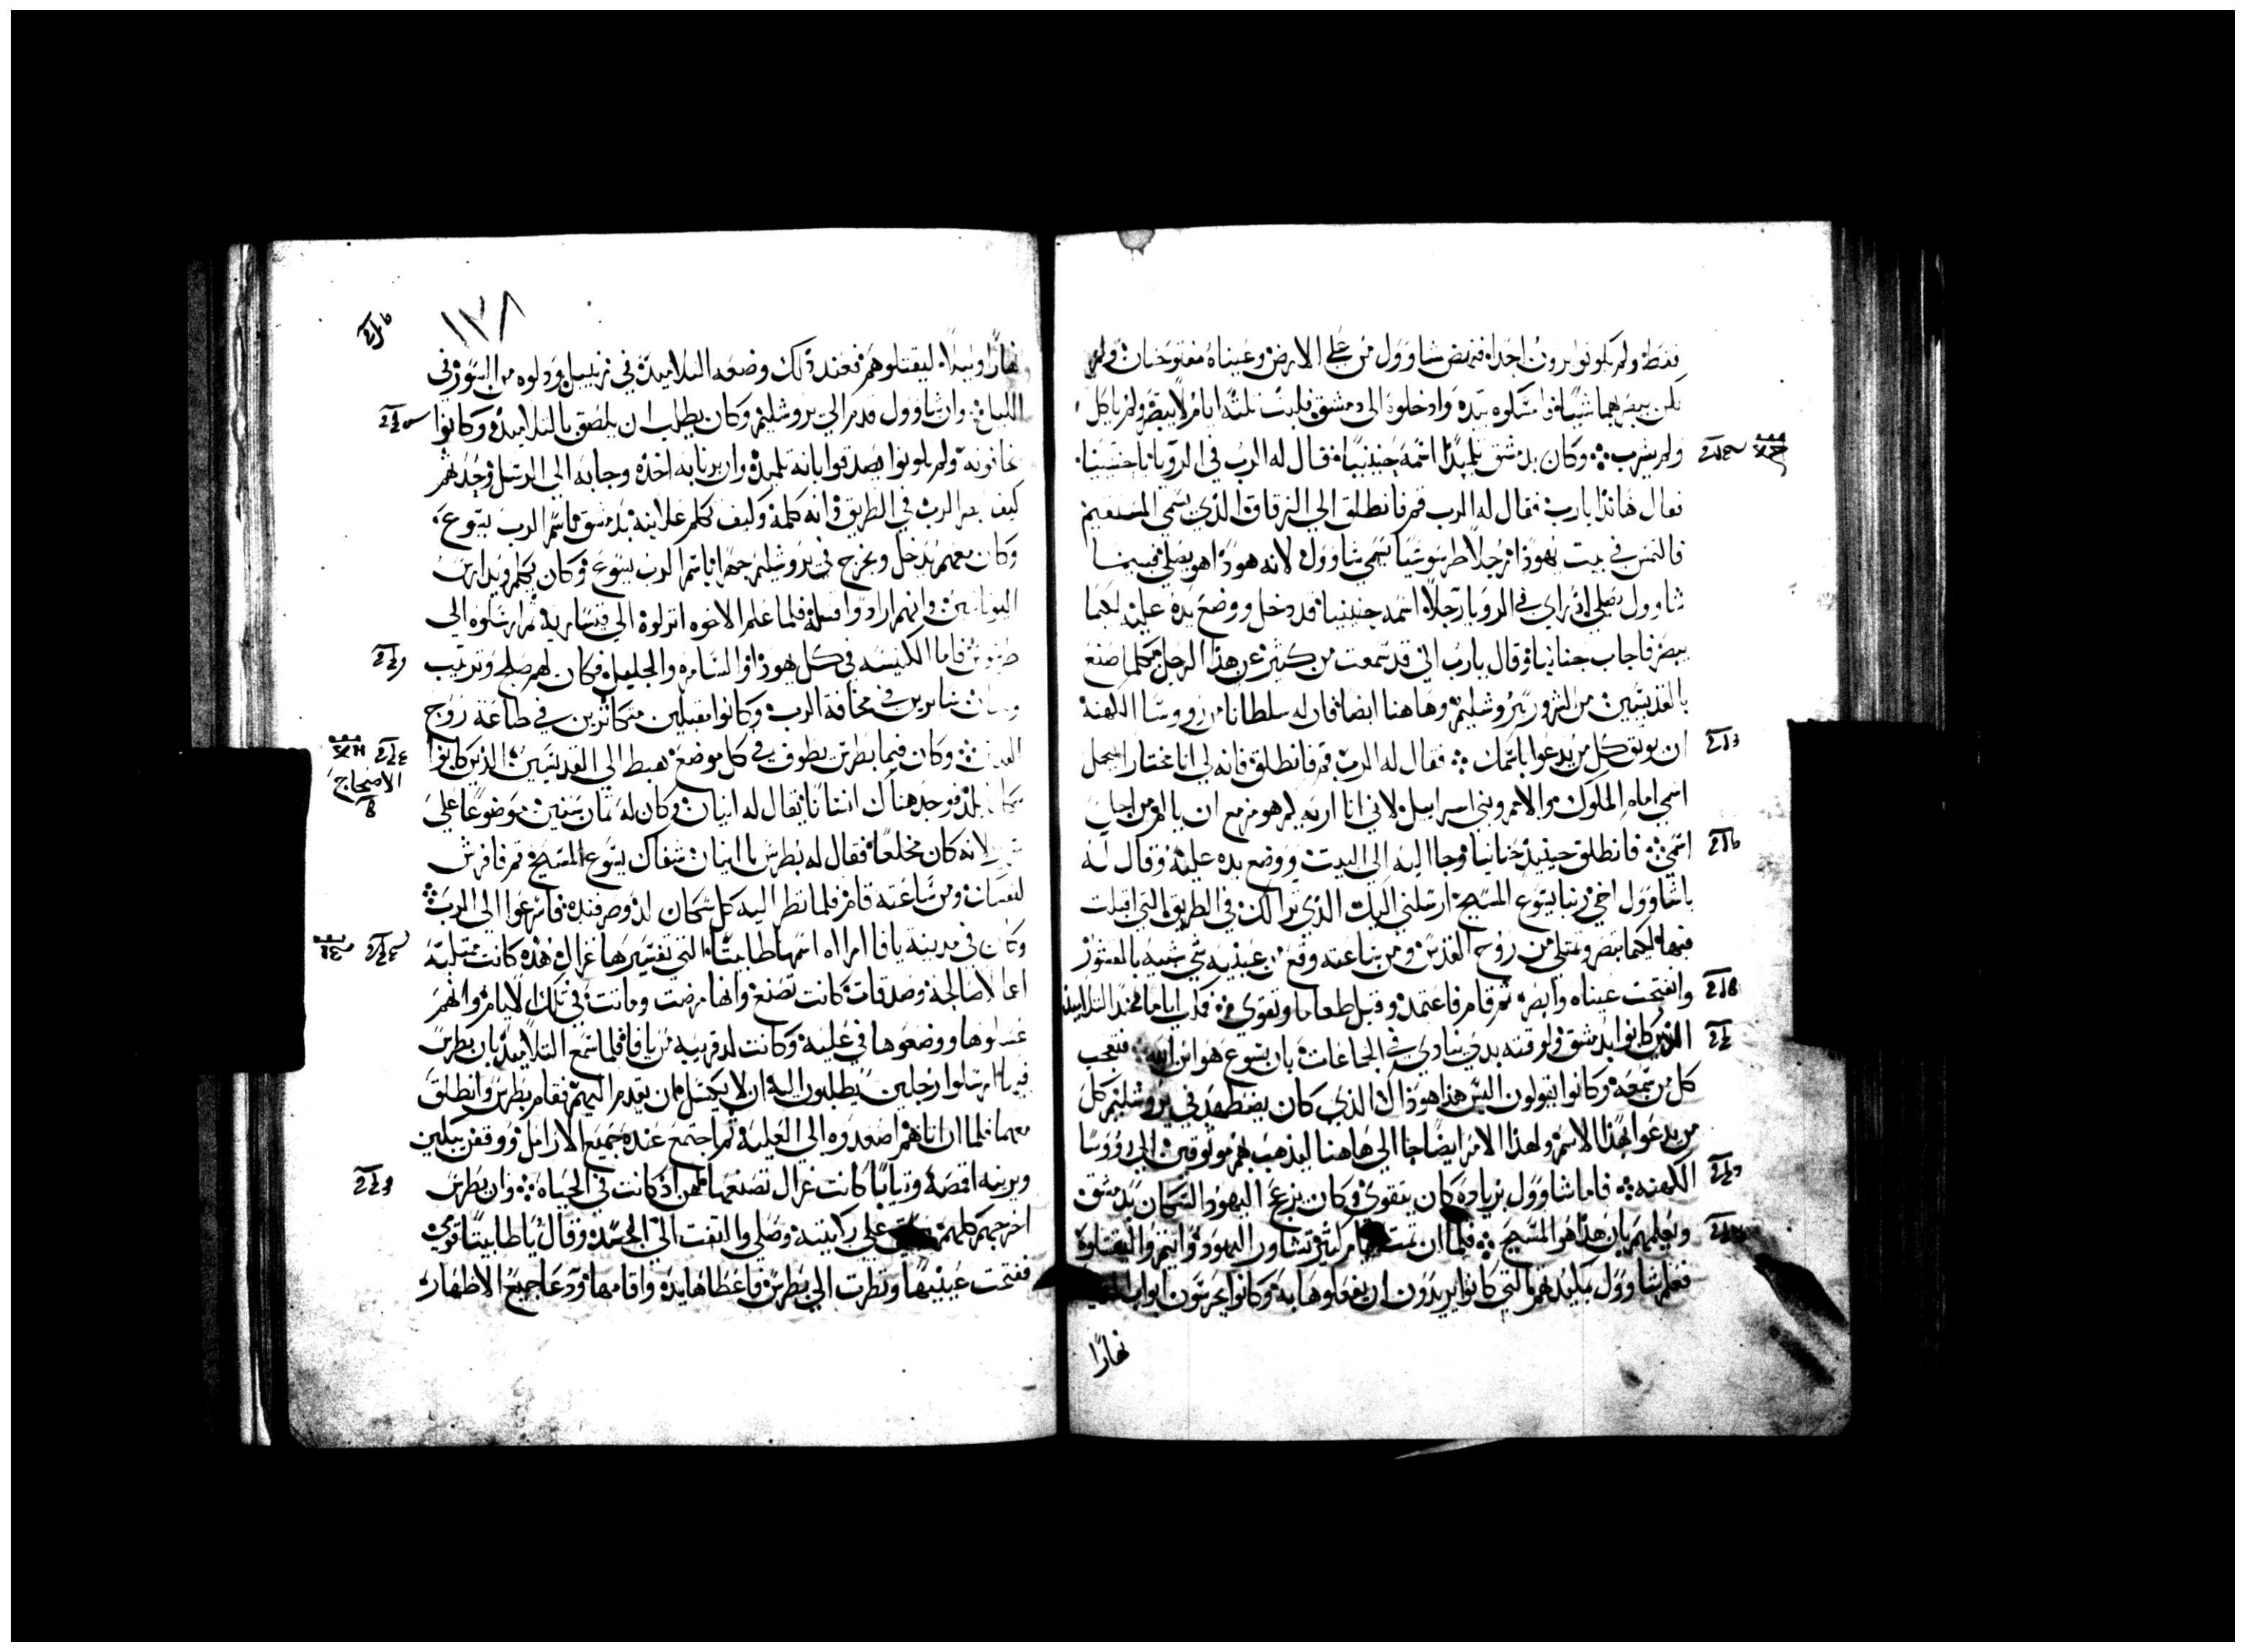 فقط ولم يكونوا يرون احدا فنهض شاوول من على الارض وعيناه مفتوحتان ولم
يكن يبصر بهما شيًا فامسكوه بيده وادخلوه الى دمشق فلبث ثلثة ايام لا يبصر ولم ياكل
ولم يشرب وكان بدمشق تلميذًا اسمه حننيا قال له الرب في الرويا يا حننيا
فقال هانذا يارب فقال له الرب قم فانطلق الي الزقاق الذي يسمي المستقيم
فالتمس في بيت يهوذا رجلًا طرسوسيًا يسمي شاوول لانه هوذا هو يصلي فبينما
شاوول يصلي اذ راي في الرويا رجلًا اسمه حننيا قد دخل ووضع يده عليه لكيما
يبصر فاجاب حنانيا وقال يارب اني قد سمعت من كثير عن هذا الرجل كلما صنع
بالقديسين من الشرور بيروشليم وهاهنا ايضا فان له سلطانا من رووسا الكهنة
ان يوثق كل من يدعوا باسمك فقال له الرب قم فانطلق فانه لي انا مختار ليحمل
اسمي امام الملوك والامم وبني اسراييل لاني انا اريه كم هو مزمع ان يالم من اجل
اسمي فانطلق حينيذ حنانيا وجا اليه الى البيت ووضع يده عليه وقال له
يا شاوول اخي ربنا يسوع المسيح ارسلني اليك الذي تراا لك في الطريق التي اقبلت
فيها لكيما تبصر وتمتلي من روح القدس ومن ساعته وقع من عينيه شي شبيه بالقشور
وانفتحت عيناه وابصر ثم قام فاعتمد وقبل طعاما وتقوي فمكث اياما عند التلاميذ
الذين كانوا بدمشق ولوقته بدي ينادي في الجماعات بان يسوع هو ابن الله فتعجب
كل من سمعه وكانوا يقولون اليس هذا هو ذاك الذي كان يضطهد في يروشليم كل
من يدعوا بهذا الاسم ولهذا الامر ايضًا جا الي هاهنا ليذهب بهم موثوقين الى رووسا
الكهنه فاما شاوول بزياده كان يتقوى وكان يزعج اليهود السكان بدمشق
ويعلمهم بان هذا هو المسيح فلما ان تمت ايام كثيرة تشاور اليهود وايتمروا ليقتلوه
فعلم شاوول بمكيدتهم التي كانوا يريدون ان يفعلوها به وكانوا يحرسون ابواب
نهارًا
١٧٨
نهارًا وليلًا ليقتلوه فعند ذلك وضعه التلاميذ في زنبيل ودلوه من السور في
الليل وان شاوول قدم الي يروشليم وكان يطلب ان يلصق بالتلاميذ وكانوا
يخافونه ولم يكونوا يصدقوا بانه تلميذ وان برنابه اخذه وجا به الي الرسل وحدثهم
كيف بصر الرب في الطريق وانه كلمه وكيف تكلم علانيه بدمشق باسم الرب يسوع
وكان معهم يدخل ويخرج في يروشليم جهرا باسم الرب يسوع وكان يكلم ويدارس
اليونانيين وانهم ارادوا قتله فلما علم الاخوه انزلوه الي قيسارية ثم ارسلوه الي
طرسوس فاما الكنيسه في كل يهوذا والسامره والجليل فكان لهم صلح وترتيب
سايرين في مخافة الرب وكانوا مقبلين متكاثرين في طاعة روح
القدس وكان فيما بطرس يطوف في كل موضع هبط الي القديسين الذين كانوا
الاصحاح
سكان بلد فوجد هناك انسانًا يقال له انيان وكان له ثمان سنين موضوعًا علي
سرير لانه كان مخلعًا فقال له بطرس يا انيان شفاك يسوع المسيح قم فافرش
لنفسك ومن ساعته قام فلما نظر اليه كل سكان لد وصرفنده فاسرعوا الي الرب
وكان في مدينة يافا امراه اسمها طابيثا التي تفسيرها غزال هذه كانت ممتلية
اعمالا صالحة وصدقات كانت تصنع وانها مرضت وماتت في تلك الايام وانهم
غسلوها ووضعوها في علية وكانت لد قريبه من يافا فلما سمع التلاميذ بان بطرس
فيها ارسلوا رجلين يطلبون اليه ان لا يكسل ان يقدم اليهم فقام بطرس وانطلق
معهما فلما ان اتاهم اصعدوه الي العلية ثم اجتمع عنده جميع الارامل ووقفن يبكين
ويرينه اقمصة وثيابًا كانت غزال تصنعها لهن اذ كانت في الحياه وان بطرس
اخرجهم كلهم علي ركبتيه وصلي والتفت الي الجسد وقال يا طابيثا قومي
ففتحت عينيها ونظرت الي بطرس فاعطاها يده واقامها ودعا جميع الاطهار